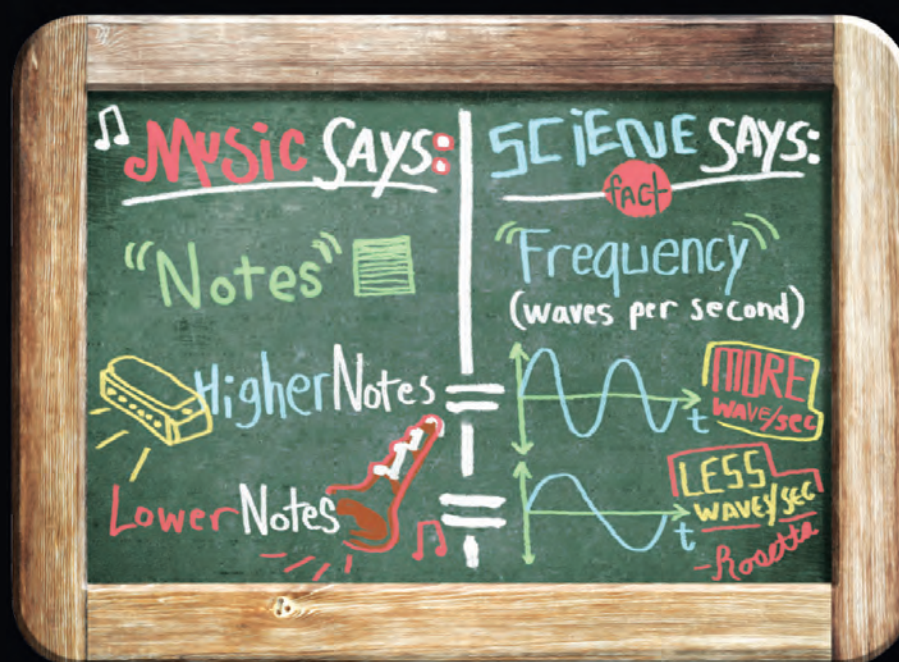 MUSIC SAYS:
"Notes"
Higher Notes
Lower Notes
SCIENE SAYS:
fact
"Frequency"
(waves per second)
t
MORE
WAVE/sec
t
LESS
WAVES/SEC
-Rosetta